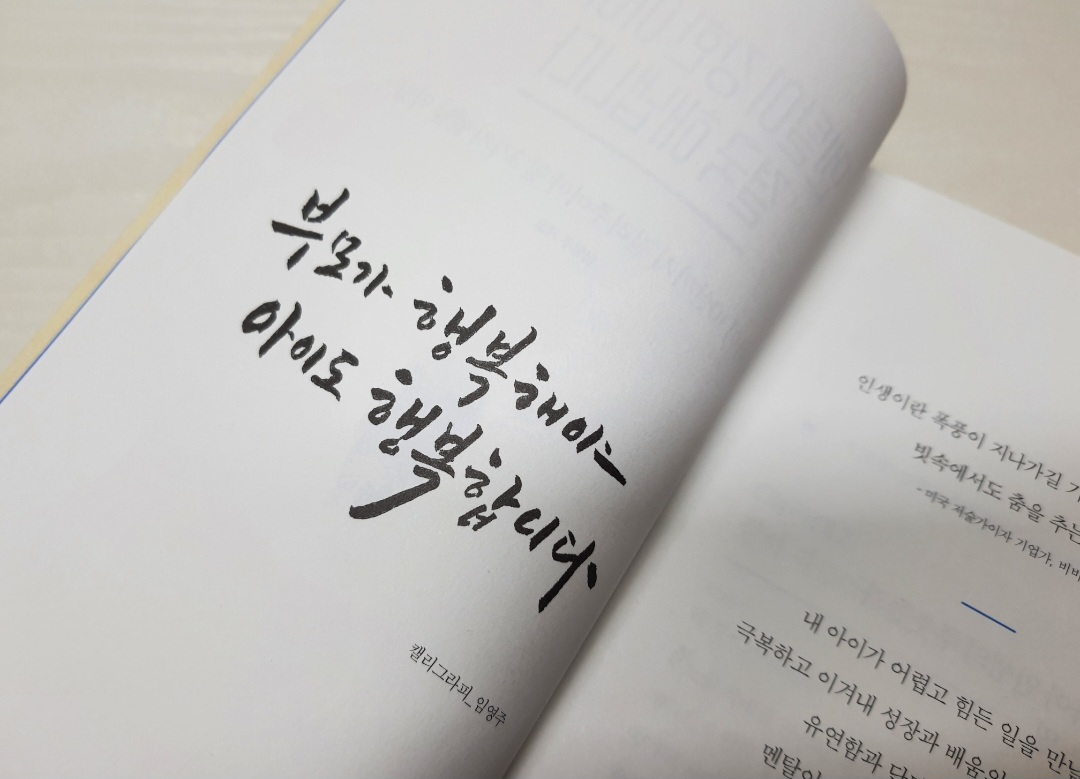 부모가 행복해야
아이도 행복합니다
캘리그라피_임영주
인생이란 폭풍이 지나가길
빗속에서도 춤을 추는
- 미국 저술가이자 기업가, 비비
내 아이가 어렵고 힘든 일을
극복하고 이겨내 성장과
유연함과